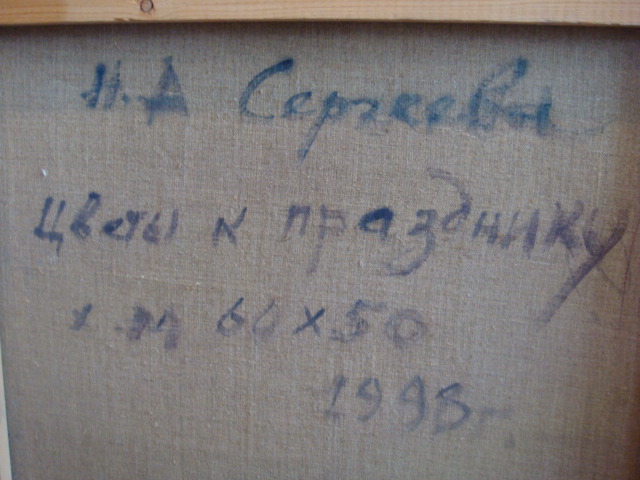 Н.А Сергеева
Цветы к празднику
х м 60х50
1998